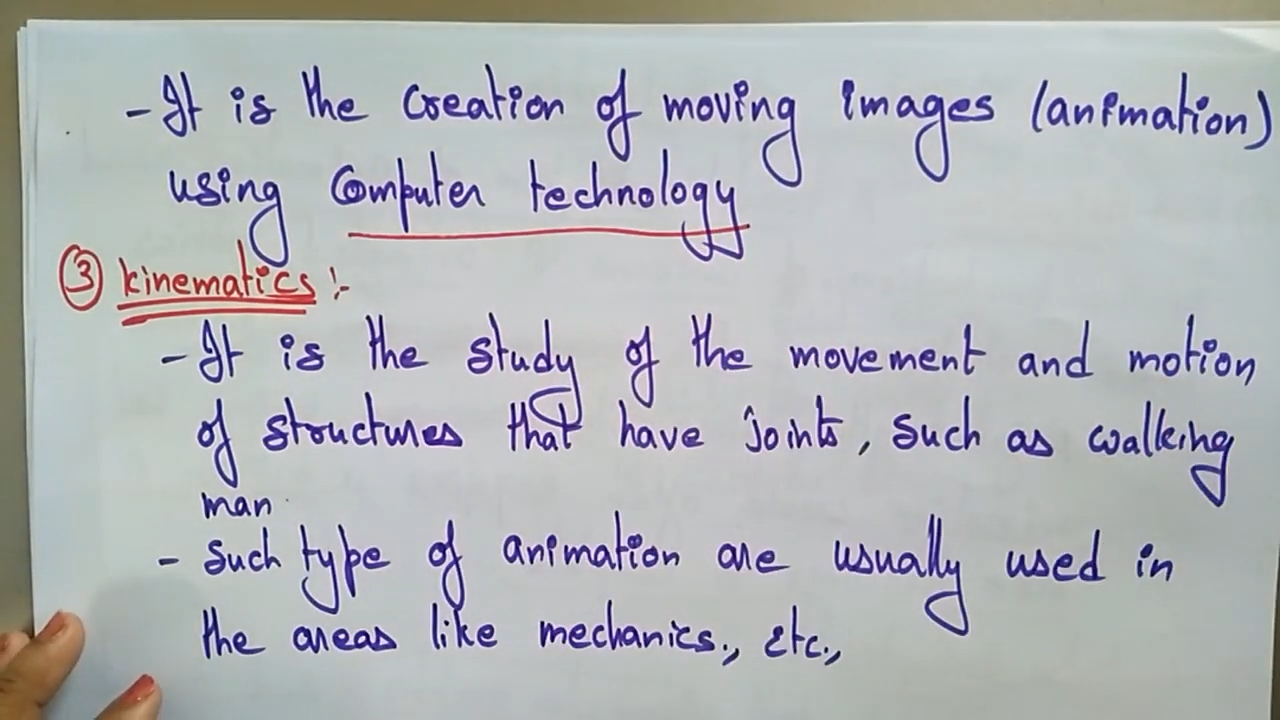 - It is the creation of moving images (animation)
using Computer technology
③ kinematics :-
- It is the study of the movement and motion
of structures that have joints, such as walking
man.
- such type of animation are usually used in
the areas like mechanics., etc.,